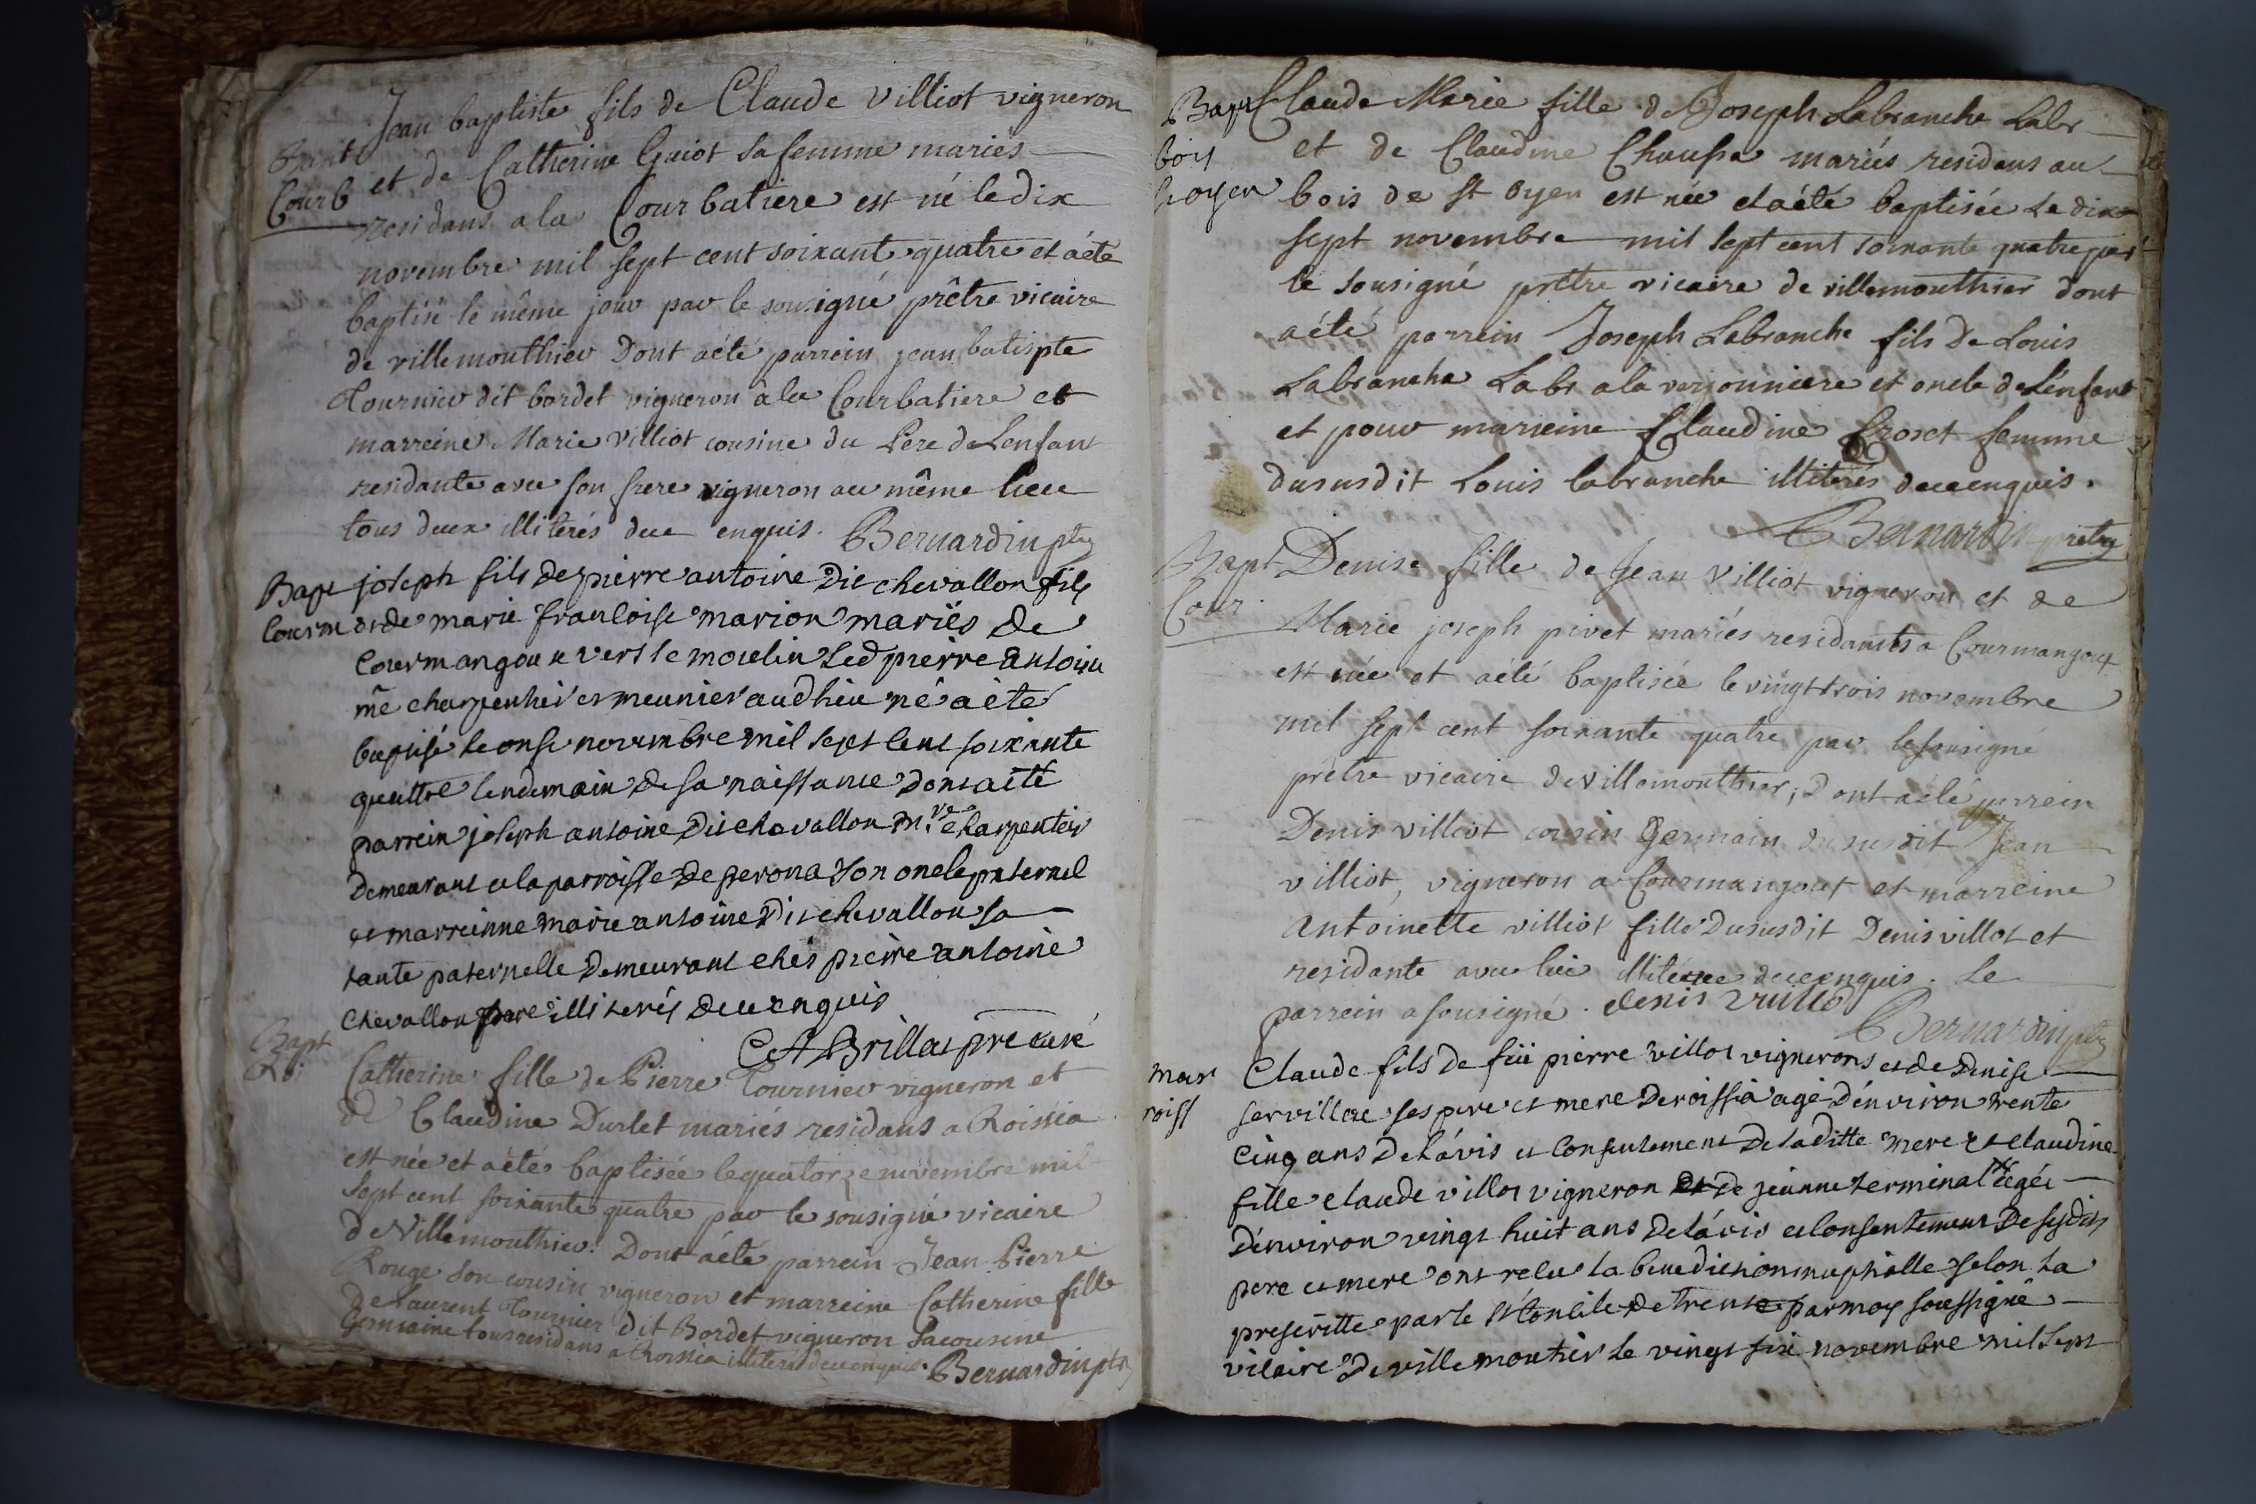 Jean baptiste fils de Claude Villiot vigneron
Courb et de Catherine Guiot sa femme mariés
residans a la Courbatiere est né le dix
novembre mil sept cent soixante quatre et a été
baptisé le même jour par le sousigné prêtre vicaire
de villemouthier Dont a été parrein jean batispte
Tournier dit bordet vigneron à la Courbatiere et
marreine Marie Villiot cousine du Pere de Lenfant
residante avec son frere vigneron au même lieu
tous deux illiterés de ce enquis. Bernardin ptre
Bapt joseph fils de pierre antoine Dit chevallon fils
Courm et de marie francoise marion mariés de
Courmangoux vers le moulin led pierre antoine
me charpentier et meunier aud lieu né a été
baptisé le onse novembre mil sept cent soixante
quattre lendemain de sa naissance dont a été
parrein joseph antoine Dit chevallon me charpentier
Demeurant a la parroisse de perona son oncle paternel
et marreinne marie antoine Dit chevallon sa
tante paternelle Demeurant chés pierre antoine
chevallon pere illiterés de ce enquis
Brillat pre curé
Bapt
Roi Catherine fille de Pierre Tournier vigneron et
de Claudine Durlet mariés residans a Roissia
est née et a été baptisée le quatorze novembre mil
sept cent soixante quatre par le sousigné vicaire
de Villemouthier. Dont a été parrein Jean Pierre
Rouge son cousin vigneron et marreine Catherine fille
de Laurent Tournier dit Bordet vigneron sa cousine
Germaine tous residans a Roissia illiterés de ce enquis. Bernardin ptre
Bapt Claude Marie fille de Joseph Labranche Labr
bois et de Claudine Chousse mariés residans au
st oyen bois de st oyen est née et a été baptisée le dix
sept novembre mil sept cent soixante quatre par
le sousigné prêtre vicaire de villemouthier dont
a été parrein Joseph Labranche fils de Louis
Labranche Labr a la verjonniere et oncle de Lenfant
et pour marreine Claudine Croset femme
du susdit Louis labranche illiterés de ce enquis.
Bernardin pretre
Bapt Denise fille de Jean Villiot vigneron et de
Cour. Marie joseph pivet mariés residants a Courmangoux
est née et a été baptisée le vingt trois novembre
mil sept cent soixante quatre par le sousigné
prêtre vicaire de villemouthier; Dont a été parrein
Denis villiot cousin Germain du susdit Jean
villiot, vigneron a Courmangoux et marreine
antoinette villiot fille du susdit Denis villot et
residante avec lui illiterée de ce enquis. Le
parrein a sousigné. denis vuillot
Bernardin ptre
mar Claude fils de feü pierre villot vignerons et de Denise
roiss servillae ses pere et mere de roissia agé d'environ trente
cinq ans de l'ávis et consentement de la ditte mere et claudine
fille claude villot vigneron et de jeanne terminal agée
d'environ vingt huit ans de l'ávis et consentement de sesdits
pere et mere ont recu la benediction nuptialle selon la
prescritte par le st Concile de trente par moy soussigné
vicaire de ville moutier le vingt six novembre mil sept